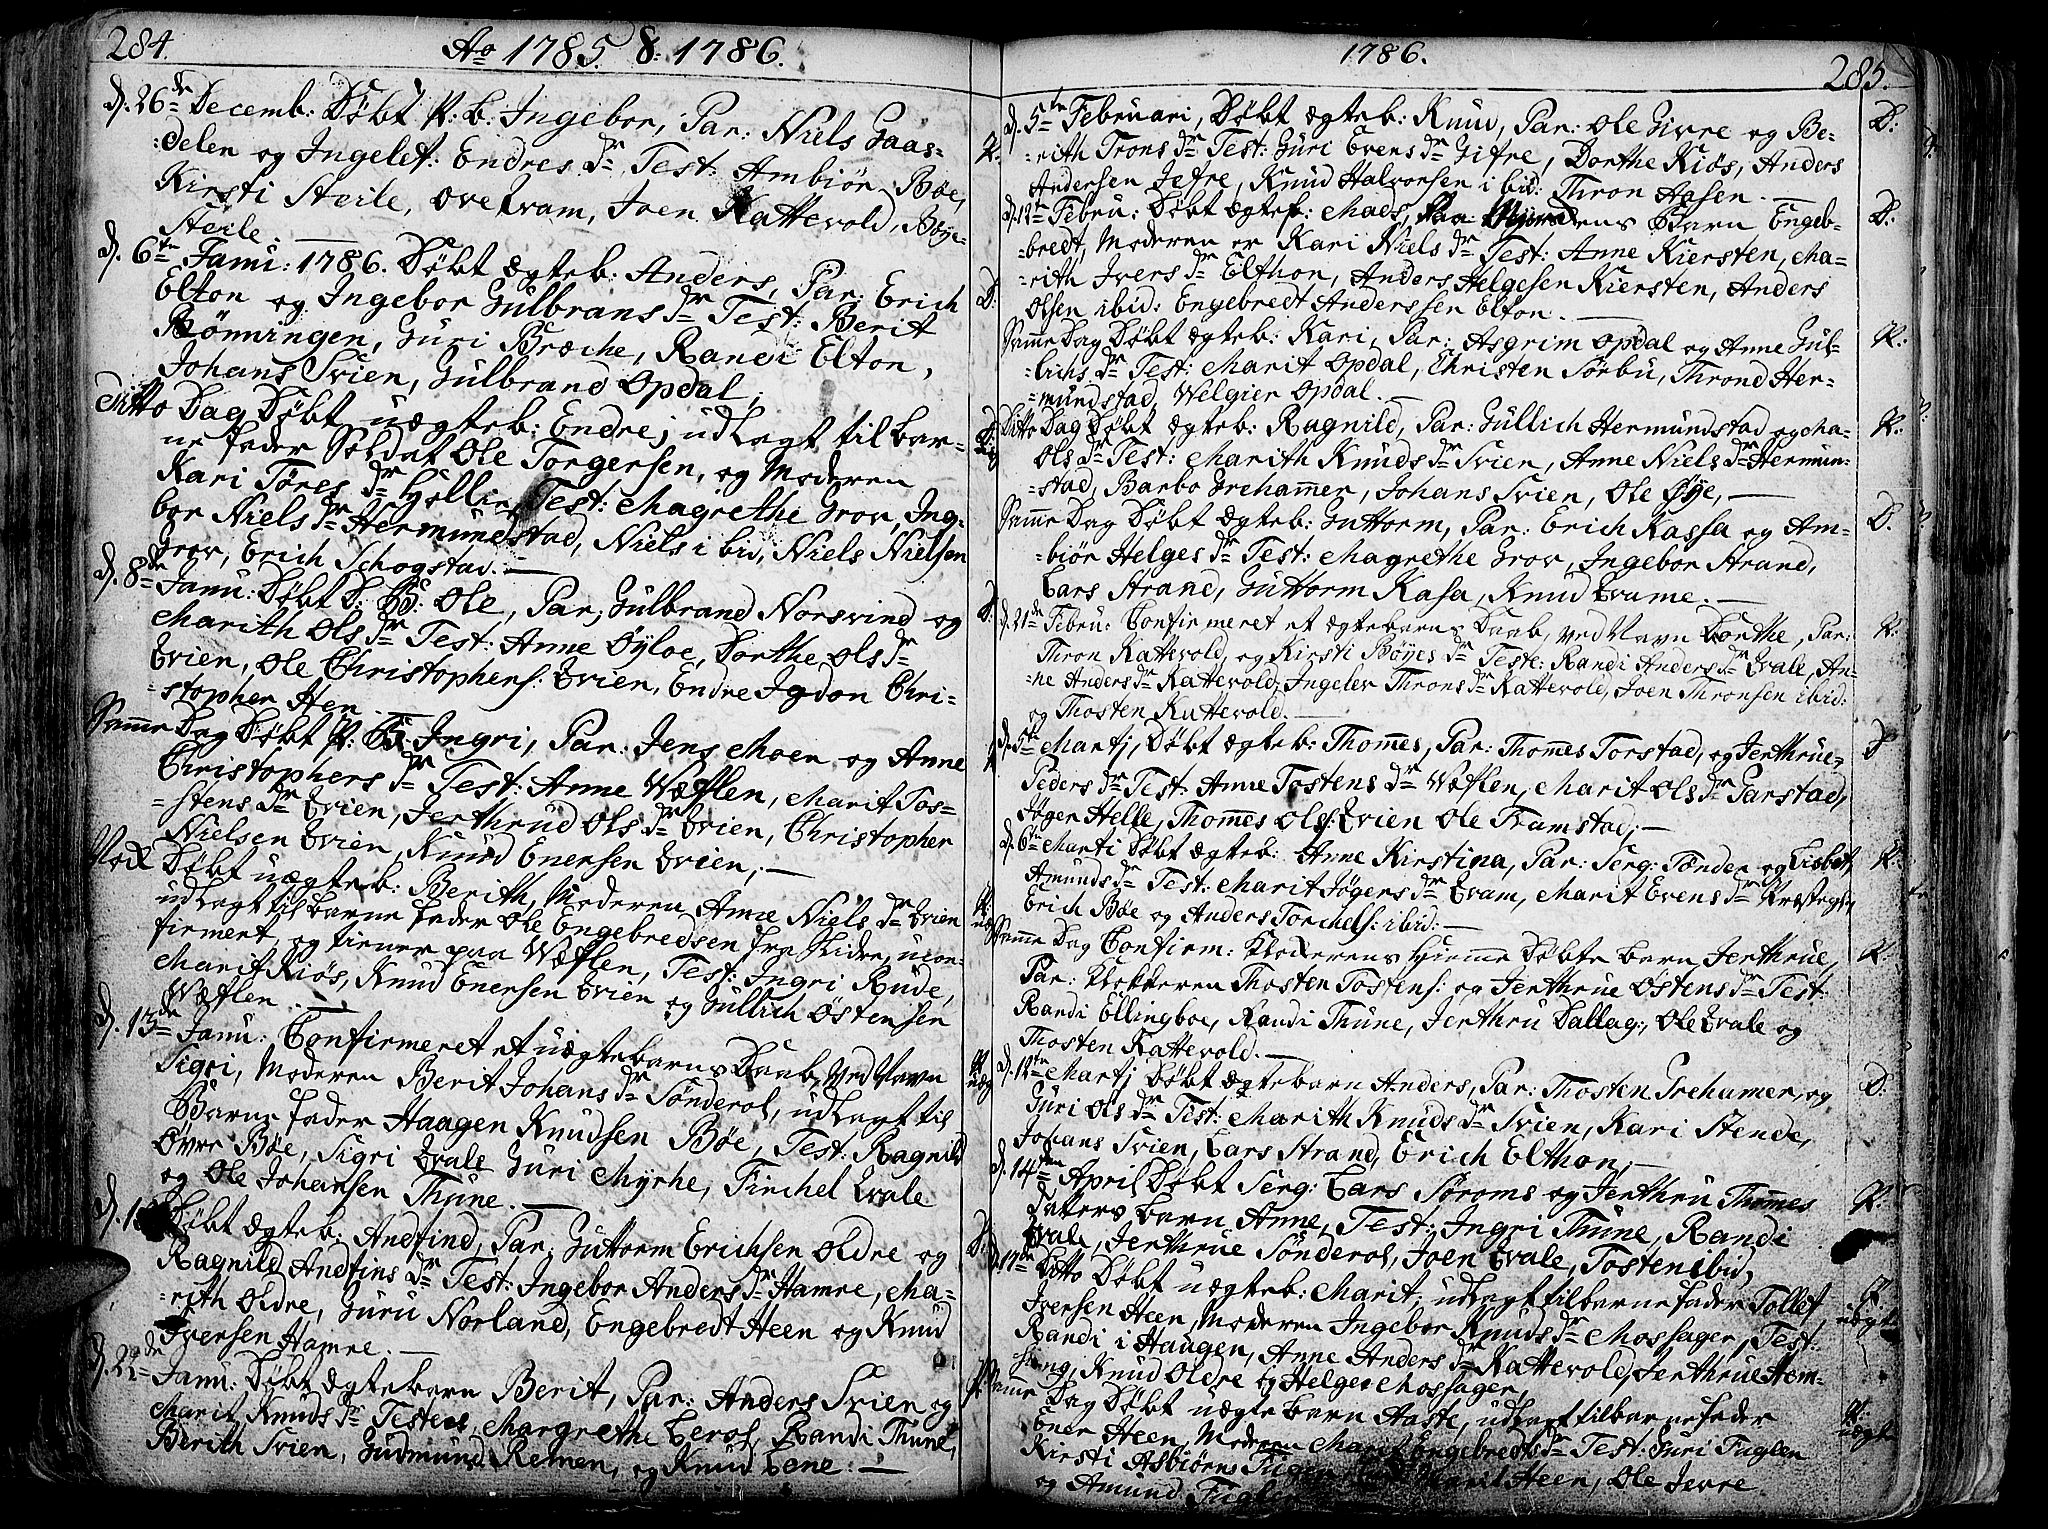 284.
Ao 1785. & 1786.
d. 26de Decemb: Døbt P: b. Ingebor, Par: Niels Gaas-
:delen og Ingelef: Endres dr Test: Ambiør Bøe,
Kirsti Steile, Ove Kvam, Joen Kattevold, Bøye
Steile. —
d. 6te Janu: 1786. Døbt Ægteb: Anders, Par: Erich
Elton og Ingebor Gulbrans dr Test: Berit
Rønningen, Guri Bræche, Randi Elton,
Johans Svien, Gulbrand Opdal;
Ditto Dag Døbt uægteb: Endre; udlagt til bar-
ne fader Soldat Ole Torgersen, og Moderen
Kari Tøres dr Test: Magrethe Grov, Ing-
bor Niels dr Hermundstad, Niels ibid, Niels Nielsen
Grov, Erich Schogstad. —
d. 8de Janu: Døbt D: B: Ole, Par; Gulbrand Norsvind og
Marith Ols dr Test: Anne Øyloe, Dorthe Ols dr
Qvien, Ole Christophens: Qvien, Endre Igdon Chri-
-stopher Hen. —
Samme Dag Døbt P: B: Ingri, Par: Jens Moen og Anne
Christophers dr Test: Anne Wæflen, Marit Tos-
=stens dr Qvien, Jerthrud Ols dr Qvien, Christopher
Nielsen Qvien, Knud Enersen Qvien; —
Nok Døbt uægteb: Berith, Moderen Anne Niels dr Qvien
udlagt til barne fader Ole Engebredsen fra Slidre, ucon-
firmert, og tiener paa Wæflen, Test: Ingri Rude,
Marit Kiøs, Knud Enersen Qvien og Gullich Østensen
Wæflen. —
d. 13de Janu: Confirmeret et uægtebarns Daab, ved Navn
Sigri, Moderen Berit Johans dr Sønderol, udlagt til
Barne fader Haagen Knudsen Bøe, Test: Ragnild
Øvre Bøe, Sigri Qvale Guri Myrhe, Tirchel Qvale
og Ole Johansen Thune. —
Døbt Ægteb: Andfind, Par: Guttorm Erichsen Oldre og
Ragnild Andfins dr Test: Ingebor Anders dr Hamre, Ma-
-rith Oldre, Guru Norland, Engebredt Heen og Knud
Iversen Hamre. —
d. 22de Janu: Døbt Ægtebarn Berit, Par: Anders Svien og
Marit Knuds dr Testes Margrethe Lerol, Randi Thune,
Berith Svien, Gudmund Remen, og Knud Lene. —
1786.
285.
d. 5te Februari, Døbt Ægteb: Knud, Par: Ole Givre og Be- D:
-rith Trons dr Test: Guri Evens dr Gifre, Dorthe Kiøs, Anders
Andersen Jefre, Knud Halvorsen ibid: Thron Aasen. —
d. 12te Febru: Døbt Ægteb: Mads, Barn Engeb- D:
-bredt, Moderen er Kari Niels dr Test: Anne Kiersten, Ma-
-rith Ivers dr Elthon, Anders Helgesen Kiersten, Anders
Olsen ibid: Engebredt Anderssen Elton. —
Samme Dag Døbt Ægteb: Kari, Par: Asgrim Opdal og Anne Gul- P:
-brichs dr Test: Marit Opdal, Christen Sørbu, Thrond Her-
=mundstad, Welgier Opdal. —
Ditto Dag Døbt Ægteb: Ragnild, Par: Gullich Hermundstad og Ma- P:
Ols dr Test: Marith Knuds dr Svien, Anne Niels dr Hermun-
=stad, Barbo Grehammer, Johans Svien, Ole Øye, —
Samme Dag Døbt Ægteb: Guttorm, Par: Erich Kassa og Am- D:
=biør Helges dr Test: Magrethe Grov, Ingebor Strand,
Lars Strand, Guttorm Kasa, Knud Qvame. —
d. 21de Febru: Confirmeret et Ægtebarns Daab, ved Navn Dorthe, Par: P:
Thron Kattevold, og Kirsti Bøyes dr Teste: Randi Anders dr Qvale, An-
-ne Anders dr Kattevold, Ingelev Throns dr Kattevold, Joen Thronsen ibid:
og Thosten Kattevold. —
d. 5te Martj, Døbt Ægteb: Thomes, Par: Thomes Torstad, og Jerthrue,
Peders dr Test: Anne Tostens dr Wæflen, Marit Ols dr Parstad,
Jøger Helle, Thommes Ols: Qvien Ole Framstad; —
d. 6te Marti Døbt Ægteb: Anne Kirstina, Par: Serg: Tønder og Lisbet, P:
Amunds dr Test: Marit Jøgers dr Qvam, Marit Evens dr
Erich Bøe og Anders Torchels: ibid: —
Samme Dag Confirm: Klokerens Hieme Døbte barn Jerthrue, P:
Par: Klokkeren Thosten Tostens: og Jerthrue Østens dr Test:
Randi Ellingboe, Randi Thune, Jerthru Dallag:, Ole Qvale og
Thosten Kattevold. —
d. 12te Martj Døbt Ægtebarn Anders, Par: Thosten Grehamer, og D:
Guri Ols dr Test: Marith Knuds dr Svien, Kari Stende,
Johans Svien, Lars Strand, Erich Elthon, —
d. 14ten April Døbt Serg: Lars Sørøms og Jerthru Thommes P:
Datters barn Anne, Test: Ingri Thune, Randi
Qvale, Jerthrue Sønderol, Joen Qvale, Tosten ibid,
d. 17de Ditto Døbt uægteb: Marit; udlagt til barne fader Tollef,
Iversen Heen, Moderen Ingebor Knuds dr Mossager, Test: uægt
Randi i Haugen, Anne Anders dr Kattevold, Jerthrue Hom-
, Knud Oldre og Helge Mossager,
Samme Dag Døbt uægte barn Aaste, udlagt til barne fader P:
Ener Heen, Moderen Marit Engebredts dr Test: Guri Fuglen uægt
Kirsti Asbiørns Marit Heen, Ole Jevre
og Amund